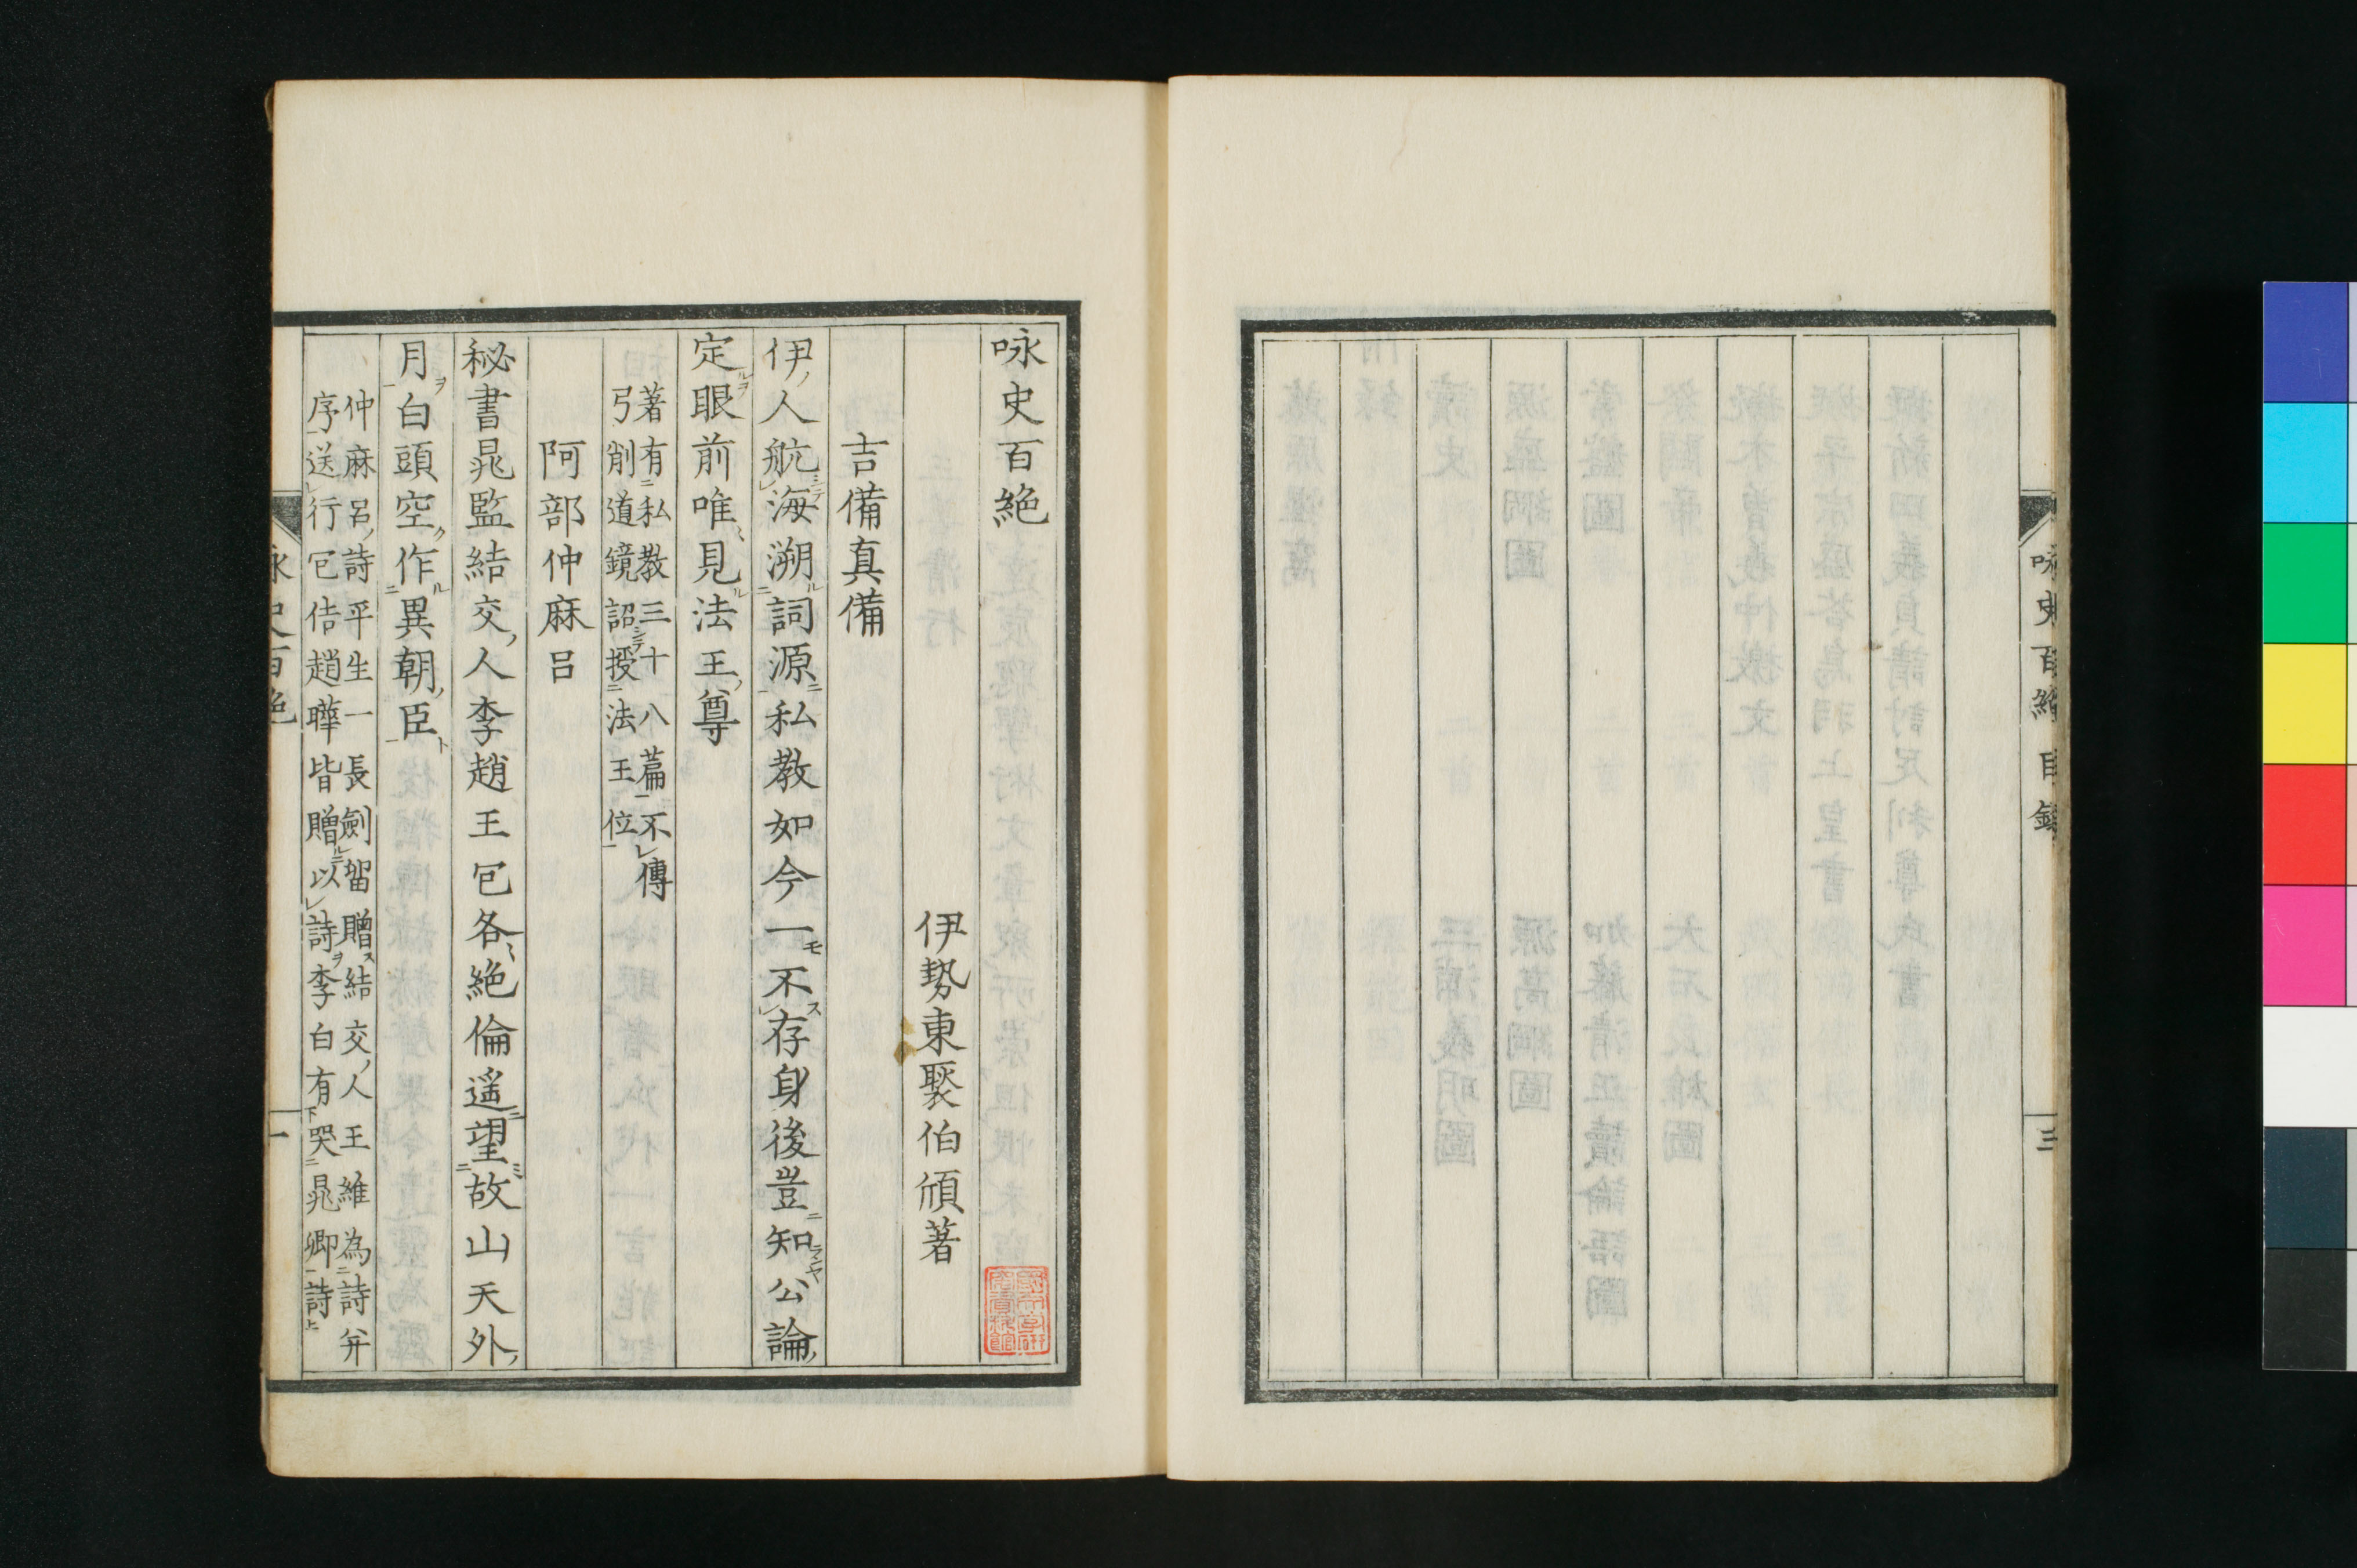 咏史百絕目錄
三
咏史百絕
伊勢東褧伯頎著
吉備真備
伊人航海溯詞源私教如今一不存身後豈知公論
定眼前唯見法王尊
著有私教三十八篇不傳
弓削道鏡詔授法王位
阿部仲麻呂
秘書晁監結交人李趙王包各絕倫遥望故山天外
月白頭空作異朝臣
仲麻呂詩平生一長劍留贈結交人王維為詩并
序送行包佶趙驊皆贈以詩李白有哭晁卿詩
咏史百絕
一